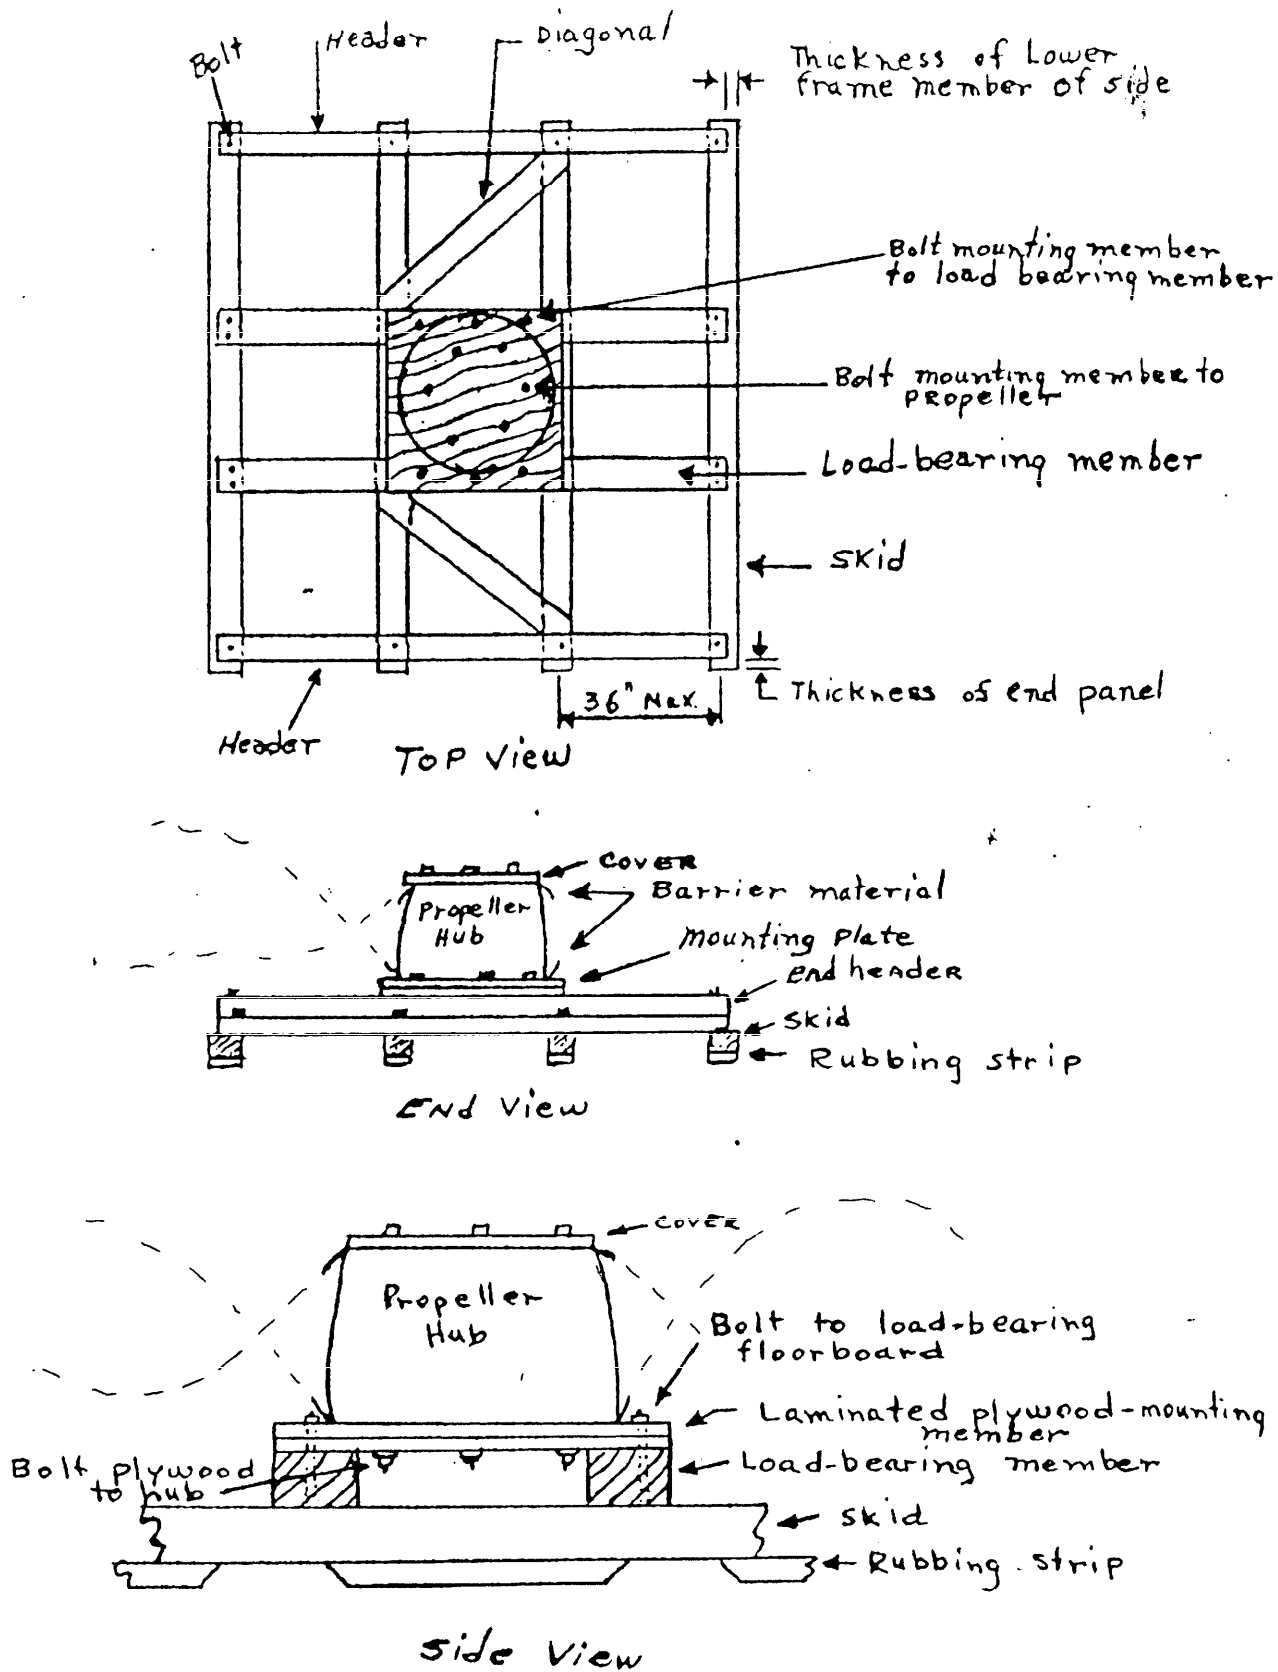 Bolt
Header
Diagonal
Thickness of Lower
frame member of side
Bolt mounting member
to load bearing member
Bolt mounting member to
propeller
Load-bearing member
Skid
36" Max.
Thickness of end panel
Header
Top View
Cover
Barrier material
Propeller
Hub
Mounting plate
end header
Skid
Rubbing strip
End View
Cover
Propeller
Hub
Bolt to load-bearing
floorboard
Laminated plywood-mounting
member
Bolt plywood
to hub
Load-bearing member
Skid
Rubbing strip
Side View